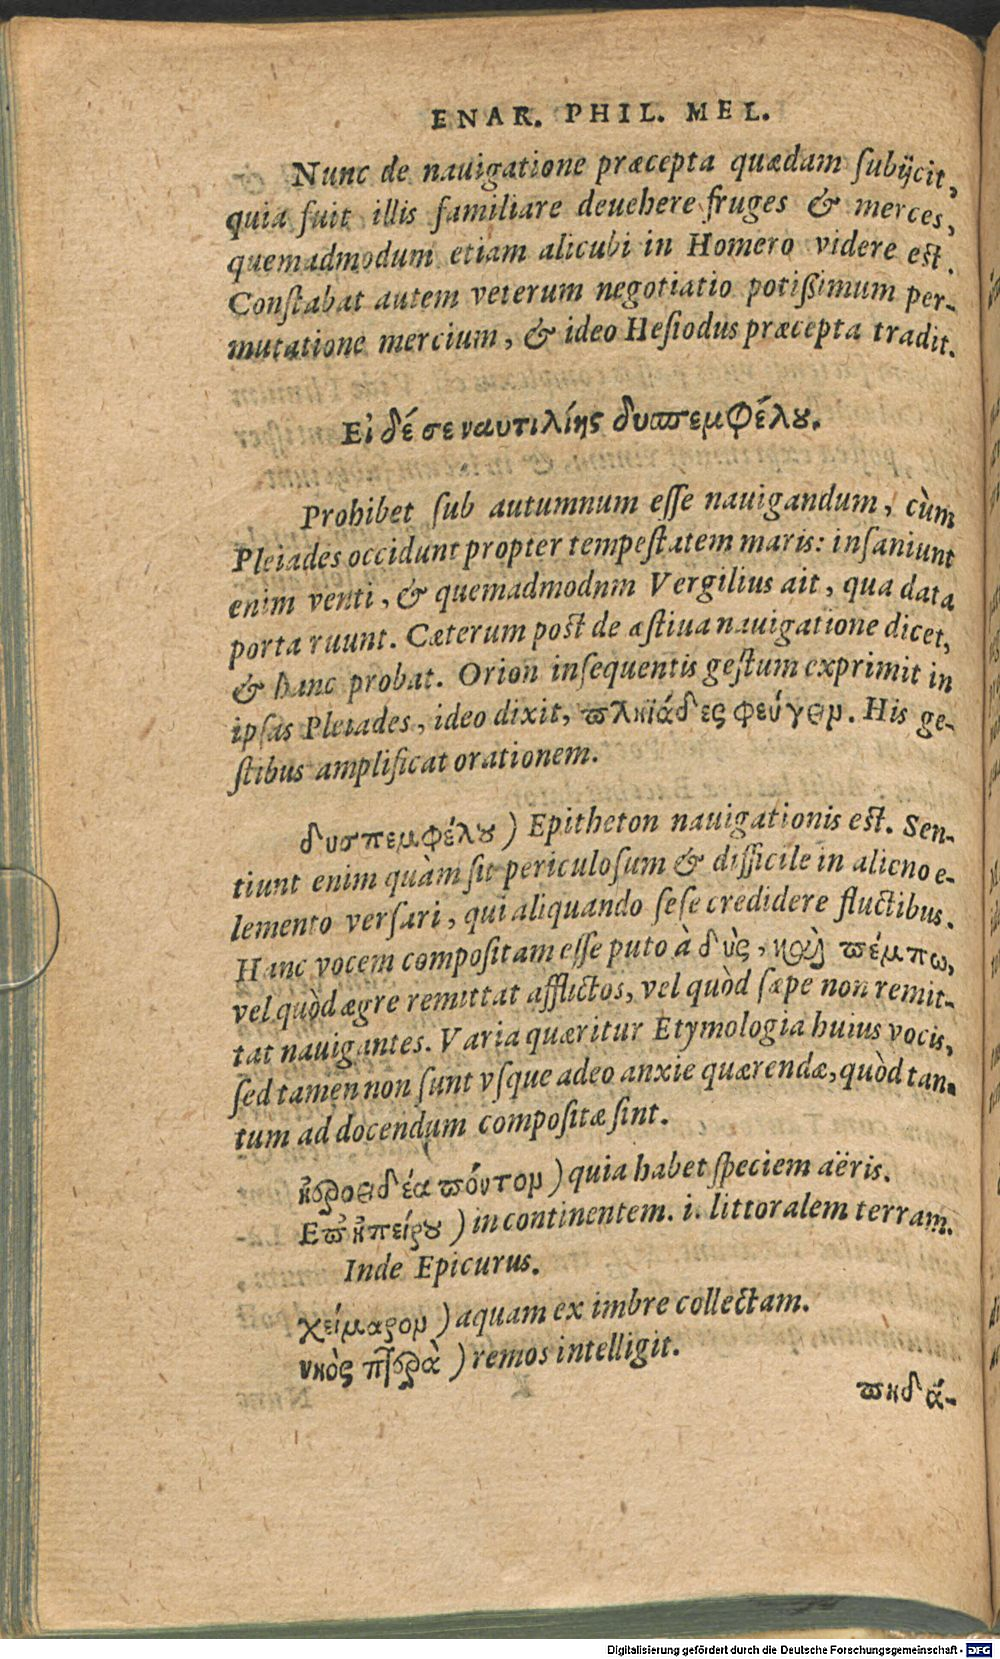 ENAR. PHIL. MEL.
Nunc de nauigatione præcepta quædam ſubijcit,
quia fuit illis familiare deuehere fruges & merces,
quemadmodum etiam alicubi in Homero videre est.
Conſtabat autem veterum negotiatio potißimum per-
mutatione mercium, & ideo Heſiodus præcepta tradit.
Εἰ δέ σε ναυτιλίης δυσπεμφέλου.
Prohibet ſub autumnum eſſe nauigandum, cùm
Pleiades occidunt propter tempeſtatem maris: inſaniunt
enim venti, & quemadmodnm Vergilius ait, qua data
porta ruunt. Cæterum post de æſtiua nauigatione dicet,
& hanc probat. Orion inſequentis geſtum exprimit in
ipſas Pleiades, ideo dixit, πληϊάδες φεύγειν. His ge-
ſtibus amplificat orationem.
δυσπεμφέλου) Epitheton nauigationis est. Sen-
tiunt enim quàm ſit periculoſum & difficile in alieno e-
lemento verſari, qui aliquando ſeſe credidere fluctibus.
Hanc vocem compoſitam eſſe puto à δυς, καὶ πέμπω,
vel quòd ægre remittat afflictos, vel quòd ſæpe non remit-
tat nauigantes. Varia quæritur Etymologia huius vocis,
ſed tamen non ſunt vſque adeo anxie quærendæ, quòd tan-
tum ad docendum compoſitæ ſint.
ἠεροειδέα πόντον) quia habet ſpeciem aëris.
Επ ἠπείρου) in continentem. i. littoralem terram.
Inde Epicurus.
χείμαρον) aquam ex imbre collectam.
νηὸς πτερὰ) remos intelligit.
πηδά-
Digitalisierung gefördert durch die Deutsche Forschungsgemeinschaft - DFG